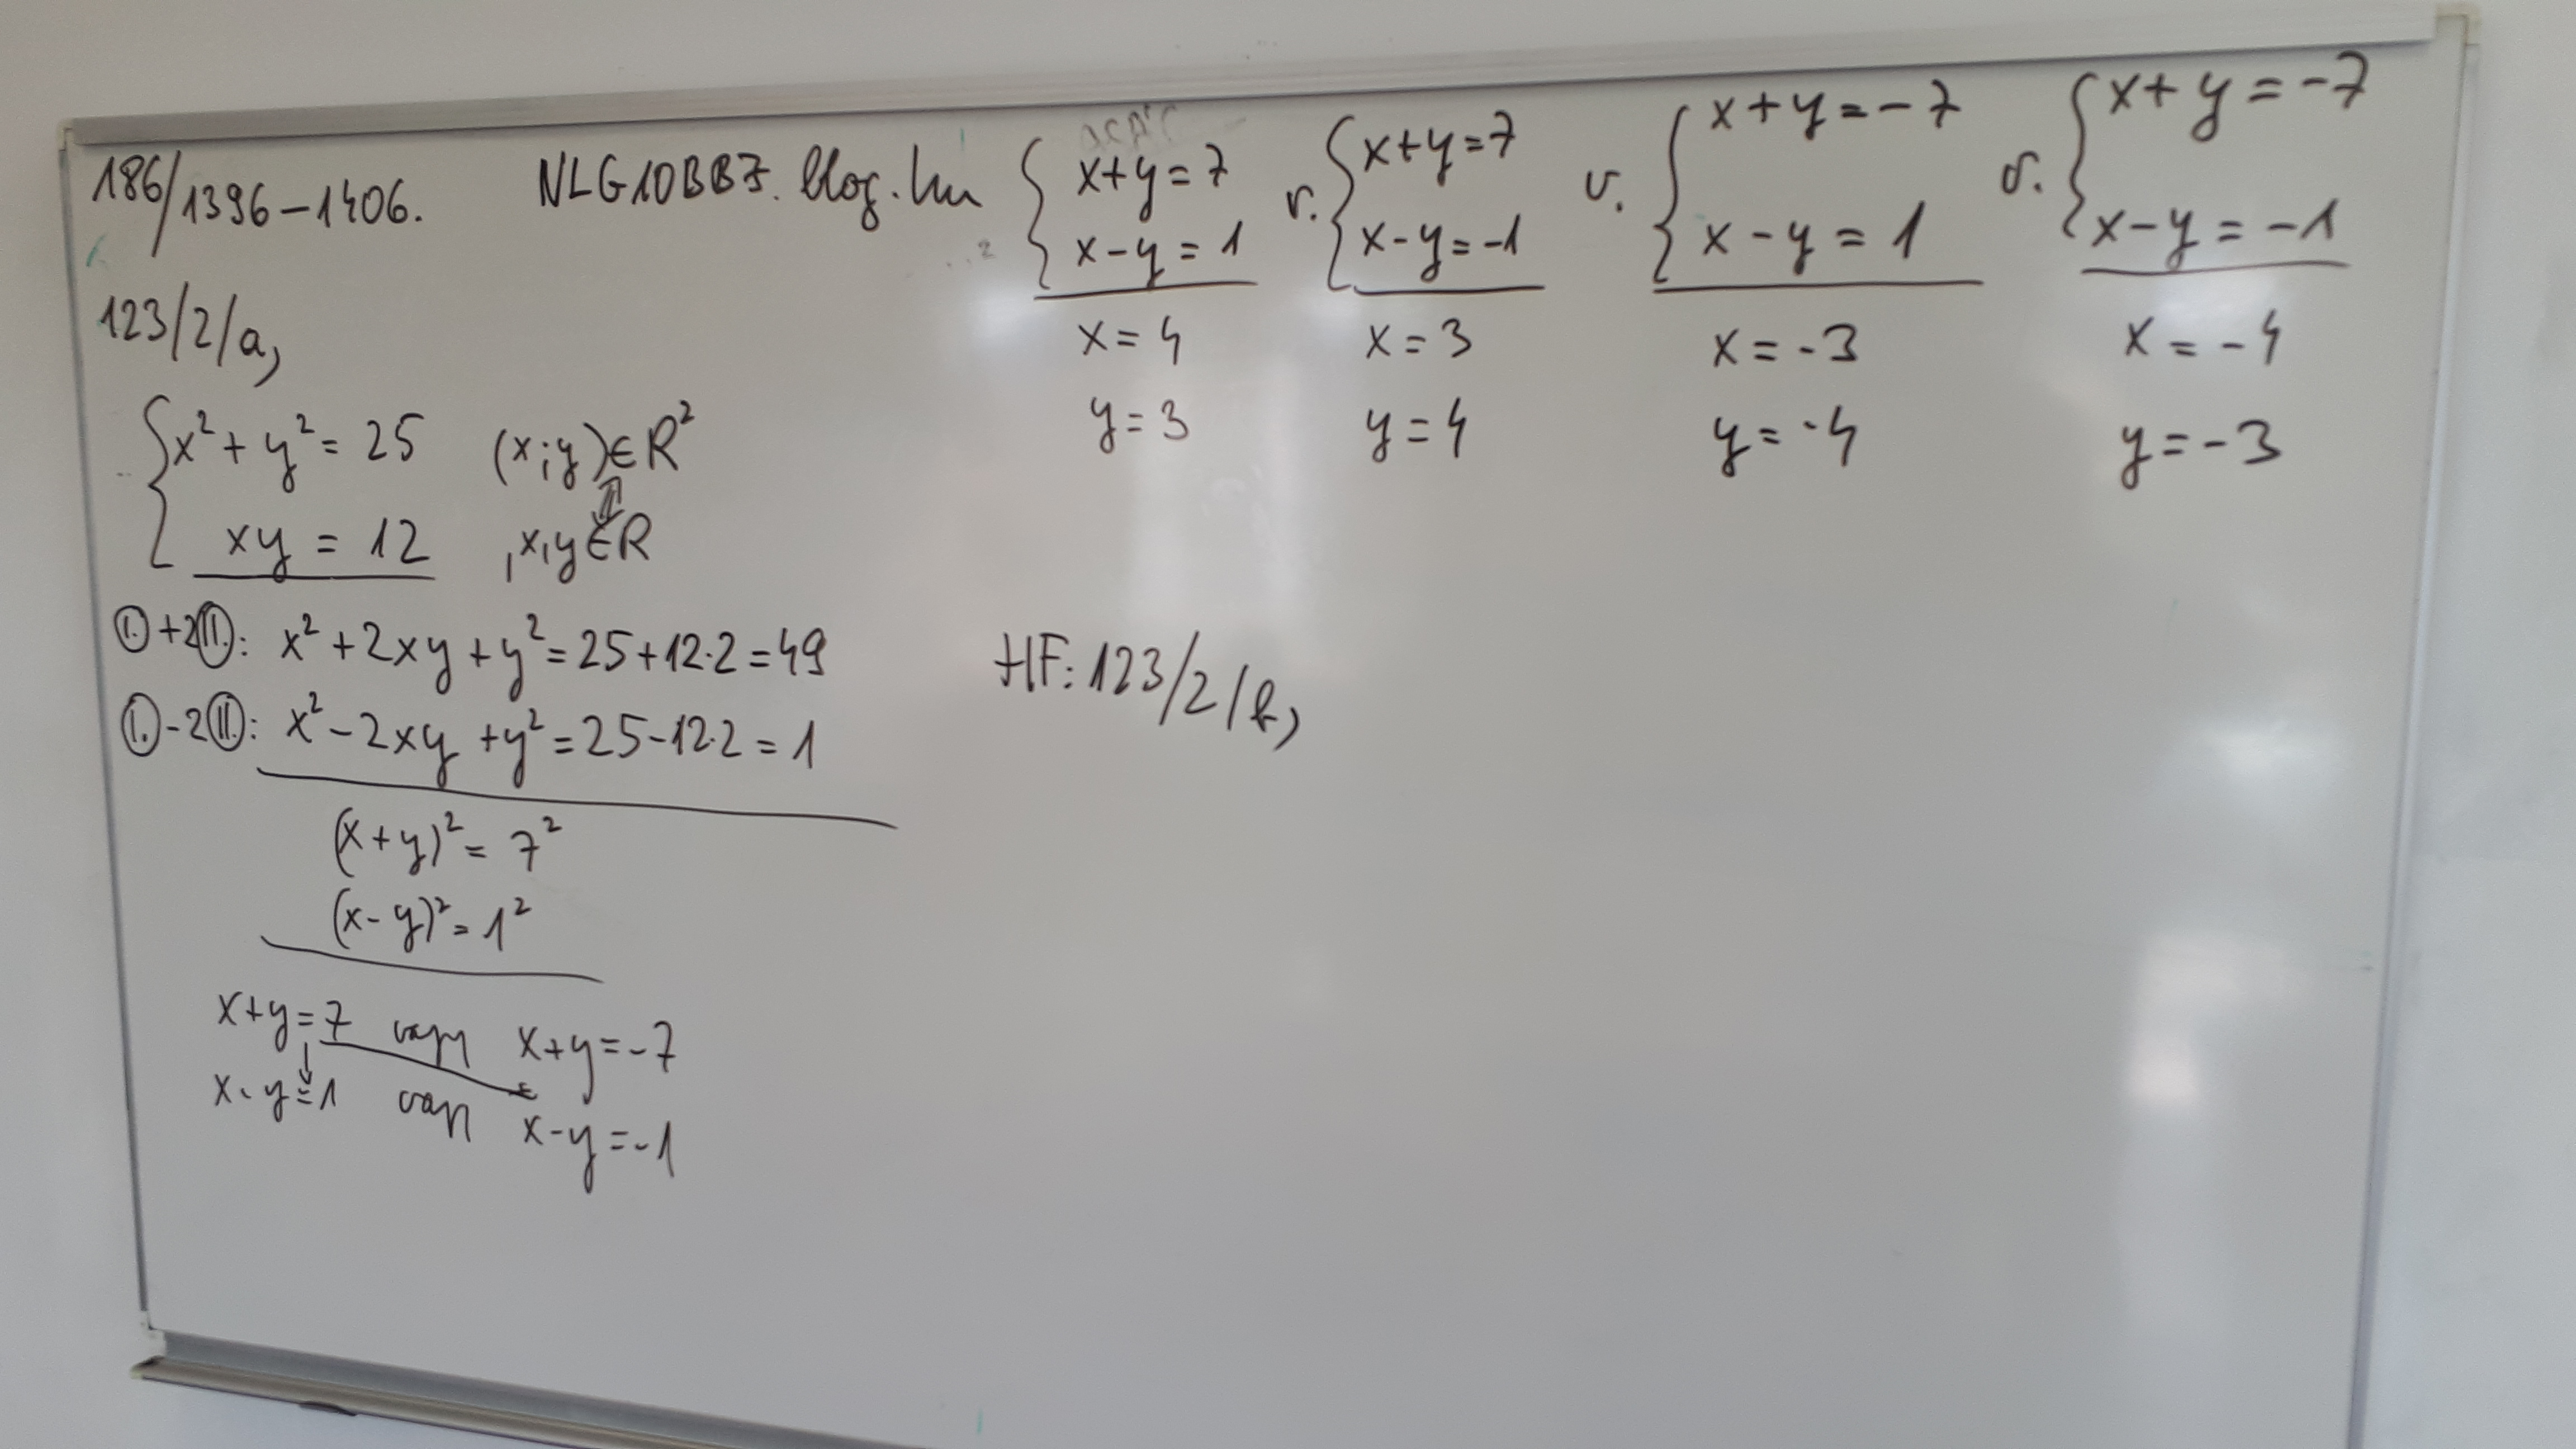 186/1396-1406.
NLG10BBZ.blog.hu
123/2/a,
x² + y² = 25 (x;y)∈R²
⇕
xy = 12 , x,y∈R
I.+2II.: x² + 2xy + y² = 25+12·2 = 49
I.-2II.: x² - 2xy + y² = 25-12·2 = 1
(x+y)² = 7²
(x-y)² = 1²
x+y=7 vagy x+y=-7
x-y=1 vagy x-y=-1
x+y=7 v. x+y=7 v. x+y=-7 v. x+y=-7
x-y=1 x-y=-1 x-y=1 x-y=-1
x=4 x=3 x=-3 x=-4
y=3 y=4 y=-4 y=-3
HF: 123/2/b,